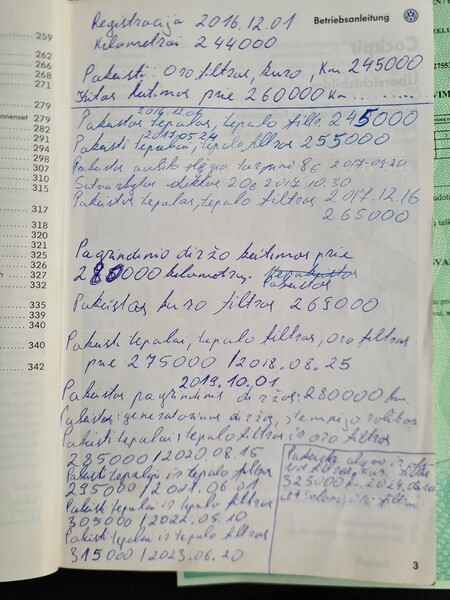 259
262
266
268
271
279
279
282
291
294
298
307
310
315
317
318
320
321
325
326
327
335
339
340
340
342
Betriebsanleitung
Registracija 2016.12.01
Kilometrai 244000
Pakeisti: oro filtras, kuro, Km. 245000
Kitas keitimas prie 260000 km
2016.12.04
Pakeistas tepalas, tepalo filtr. 245000
2017.05.24
Pakeisti tepalai, tepalo filtras 255000
Pakeista aušito tarpinė 8€ 2017.09.20
diktas 20€ 2017.10.30
Pakeistas tepalas, tepalo filtras 2017.12.16
265000
Pagrindinio diržo keitimas prie
280000 kilometrų.
Pakeistas
Pakeistas kuro filtras 269000
Pakeisti tepalas, tepalo filtras, oro filtras
prie 275000 / 2018.08.25
2019.10.01
Pakeistas pagrindinis diržas: 280000 km.
Pakeistas: generatoriaus diržas, įtempėjo
Pakeisti tepalas; tepalo filtras ir oro filtras
285000 / 2020.08.15
Pakeisti tepalai ir tepalo filtras
295000 / 2021.06.01
Pakeisti tepalai ir tepalo filtras
305000 / 2022.09.10
Pakeisti tepalai ir tepalo filtras
315000 / 2023.06.20
filtras, kuro filtras
325000 km. 2024.
ir salono, oro filtrai
3